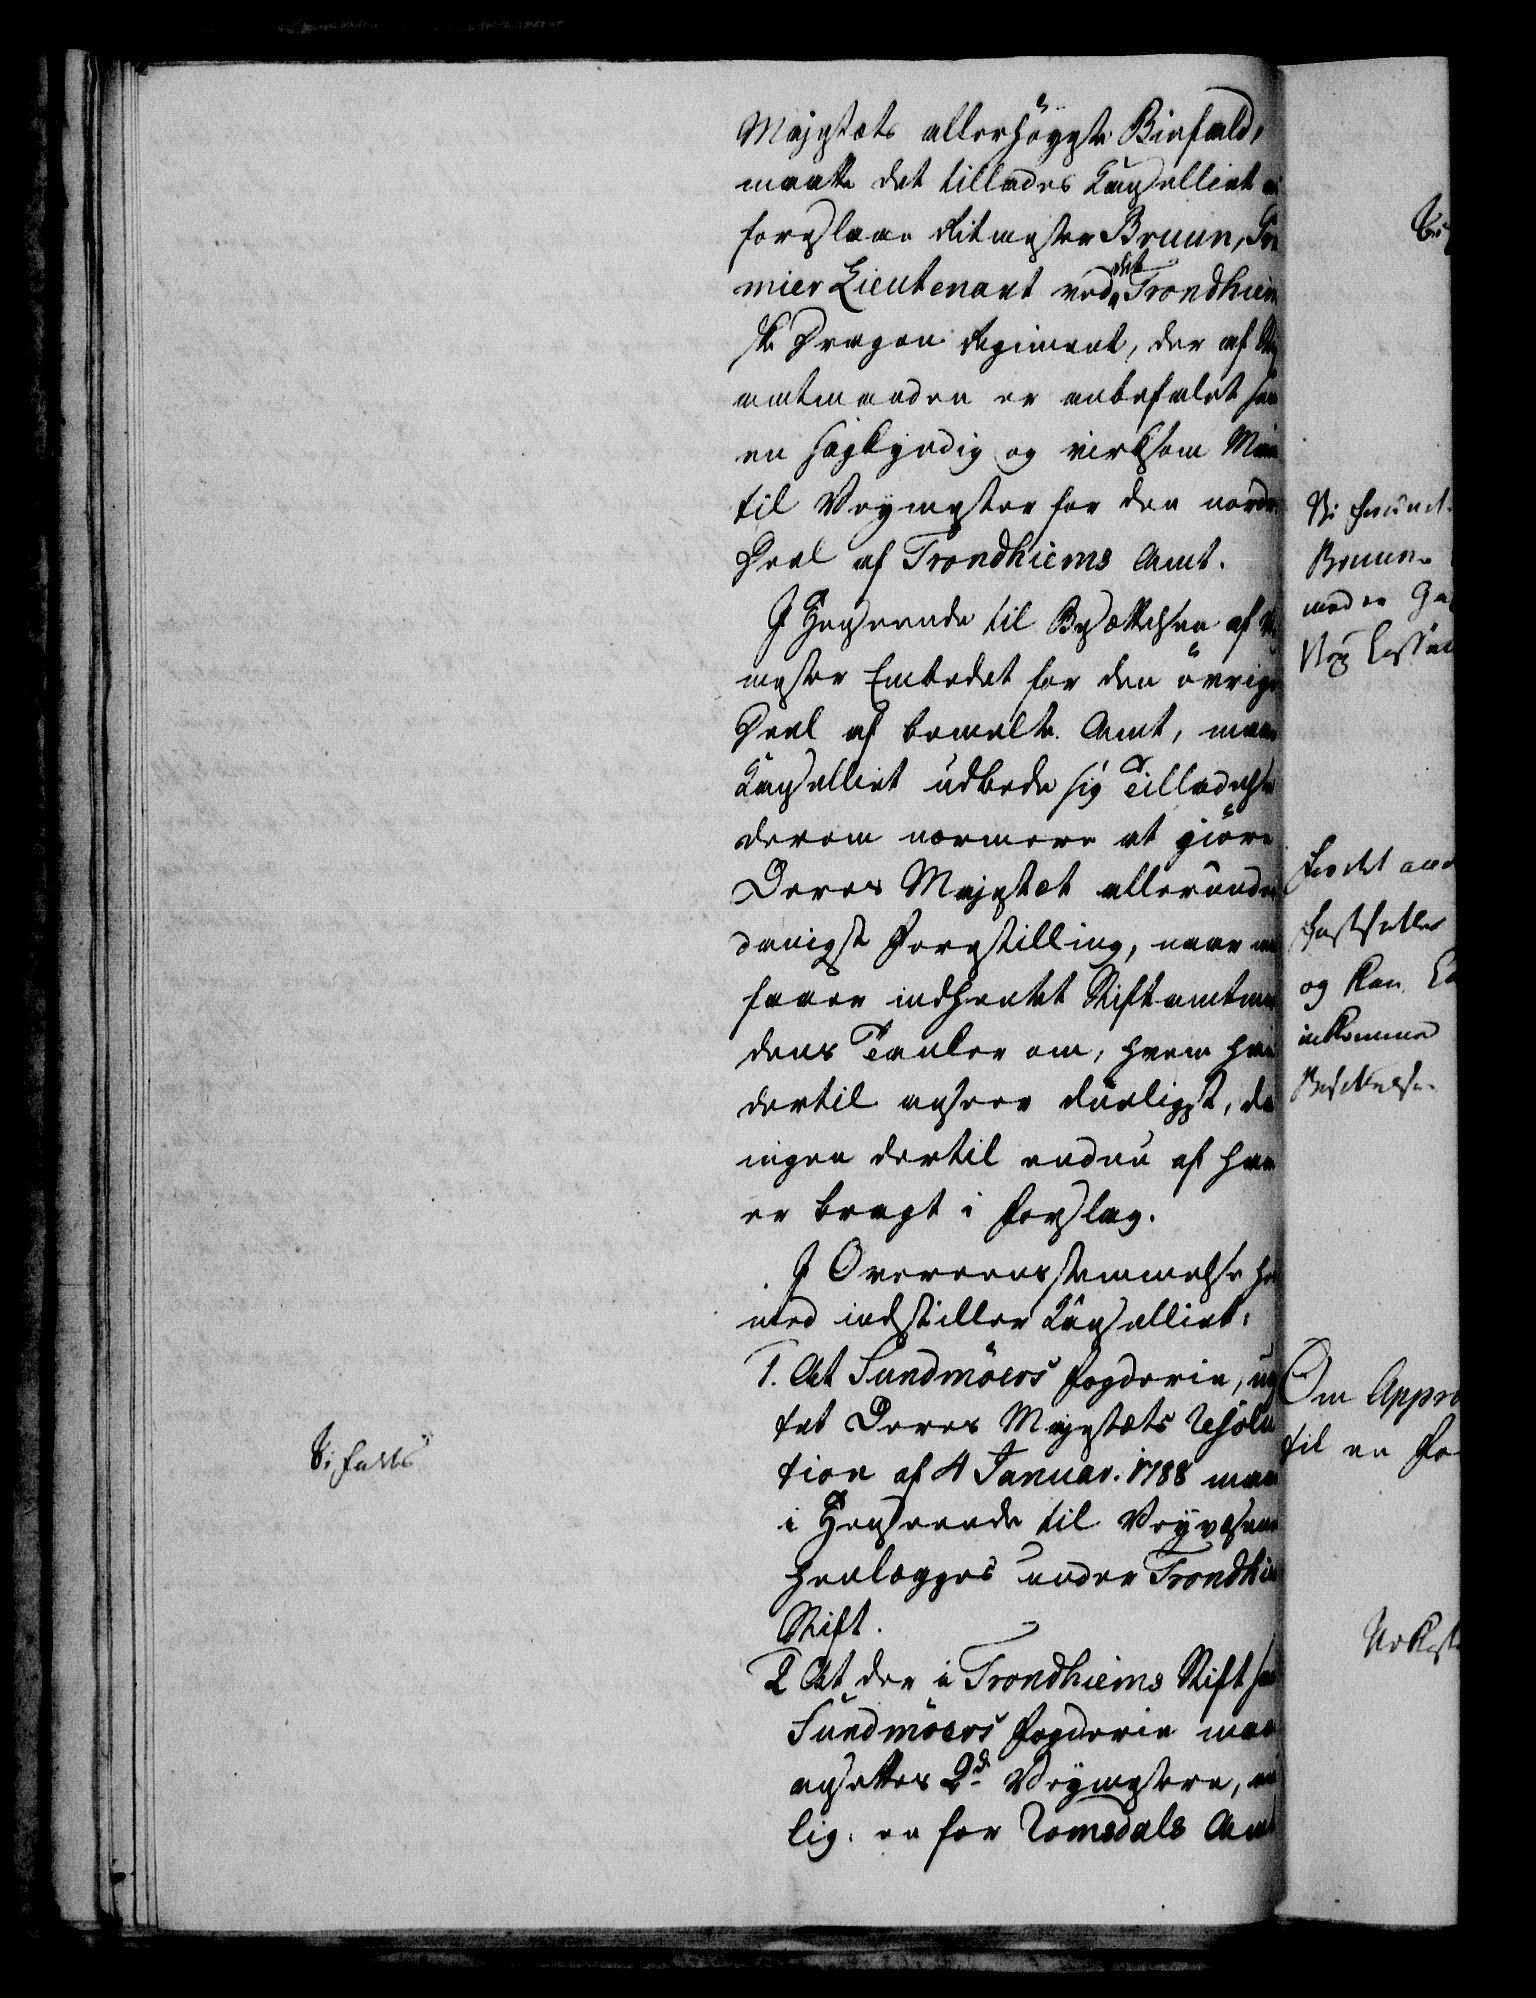 Majestæts allerhöyeste Biefald,
maatte det tillades Cancelliet
foreslaae Ritmester Bruun, Pre
mier Lieutenant ved det Trondhiem
ske Dragon Regiment, der af
amtmanden er anbefalet som
en sagkyndig og virksom Man
til Veymester for den nordre
Deel af Trondhiems Amt.
I Henseende til Besættelsen af
mester Embedet for den övrige
Deel af bemelte Amt, maae
Cancelliet udbede sig Tilladelse
derom nærmere at giöre
Deres Majestæt allerunder
danigst Forestilling, naar
faaer indhentet Stiftamtman
dens Tanker om, hvem han
dertil ansees duelligst, da
ingen dertil endnu af ham
er bragt i Forslag.
I Overeensstemmelse her
med indstiller Cancelliet:
1. At Sundmöers Fogderie,
tet Deres Majestæts Resolu
tion af 4 Januar. 1788 maae
i Henseende til Veyvæsenet
henlægges under Trondhiems
Stift.
2 At der i Trondhiems Stift
Sundmöers Fogderie maae
ansættes 2de Veymestere,
lig: en for Romsdals Amt
Bifaldes
Bruun
med en
og kan
indkomme
Om Appro
til en Fo